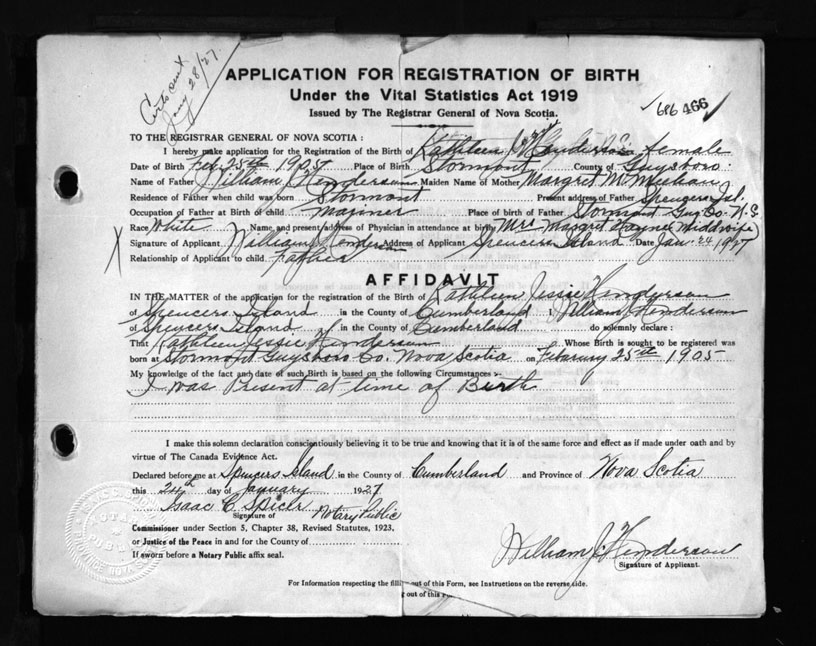 Certs out
Jany 28/27.
APPLICATION FOR REGISTRATION OF BIRTH
Under the Vital Statistics Act 1919
Issued by The Registrar General of Nova Scotia.
466
TO THE REGISTRAR GENERAL OF NOVA SCOTIA :
I hereby make application for the Registration of the Birth of Kathleen J Henderson female
Date of Birth Feb 25th 1905 Place of Birth Stormont County of Guysboro
Name of Father William J Henderson Maiden Name of Mother Margret McMeekan
Residence of Father when child was born Stormont Present address of Father Spencers Isl.
Occupation of Father at Birth of child mariner Place of birth of Father Stormont Guy Co. N.S.
Race White Name and present address of Physician in attendance at birth Mrs Margret Hayne (Middwife)
Signature of Applicant William J Henderson Address of Applicant Spencers Island Date Jan 24 1927
Relationship of Applicant to child Father
AFFIDAVIT
IN THE MATTER of the application for the registration of the Birth of Kathleen Jessie Henderson
of Spencers Island in the County of Cumberland I, William J Henderson
of Spencers Island in the County of Cumberland do solemnly declare :
That Kathleen Jessie Henderson Whose Birth is sought to be registered was
born at Stormont Guysboro Co. Nova Scotia on February 25th 1905
My knowledge of the fact and date of such Birth is based on the following Circumstances :-
I was Present at time of Birth
I make this solemn declaration conscientiously believing it to be true and knowing that it is of the same force and effect as if made under oath and by
virtue of The Canada Evidence Act.
Declared before me at Spencers Island in the County of Cumberland and Province of Nova Scotia
this 24th day of January 1927
Isaac C. Spicer Notary Public
Signature of
Commissioner under Section 5, Chapter 38, Revised Statutes, 1923,
or Justice of the Peace in and for the County of
If sworn before a Notary Public affix seal.
William J. Henderson
Signature of Applicant.
For Information respecting the filling out of this Form, see Instructions on the reverse side.
out of this